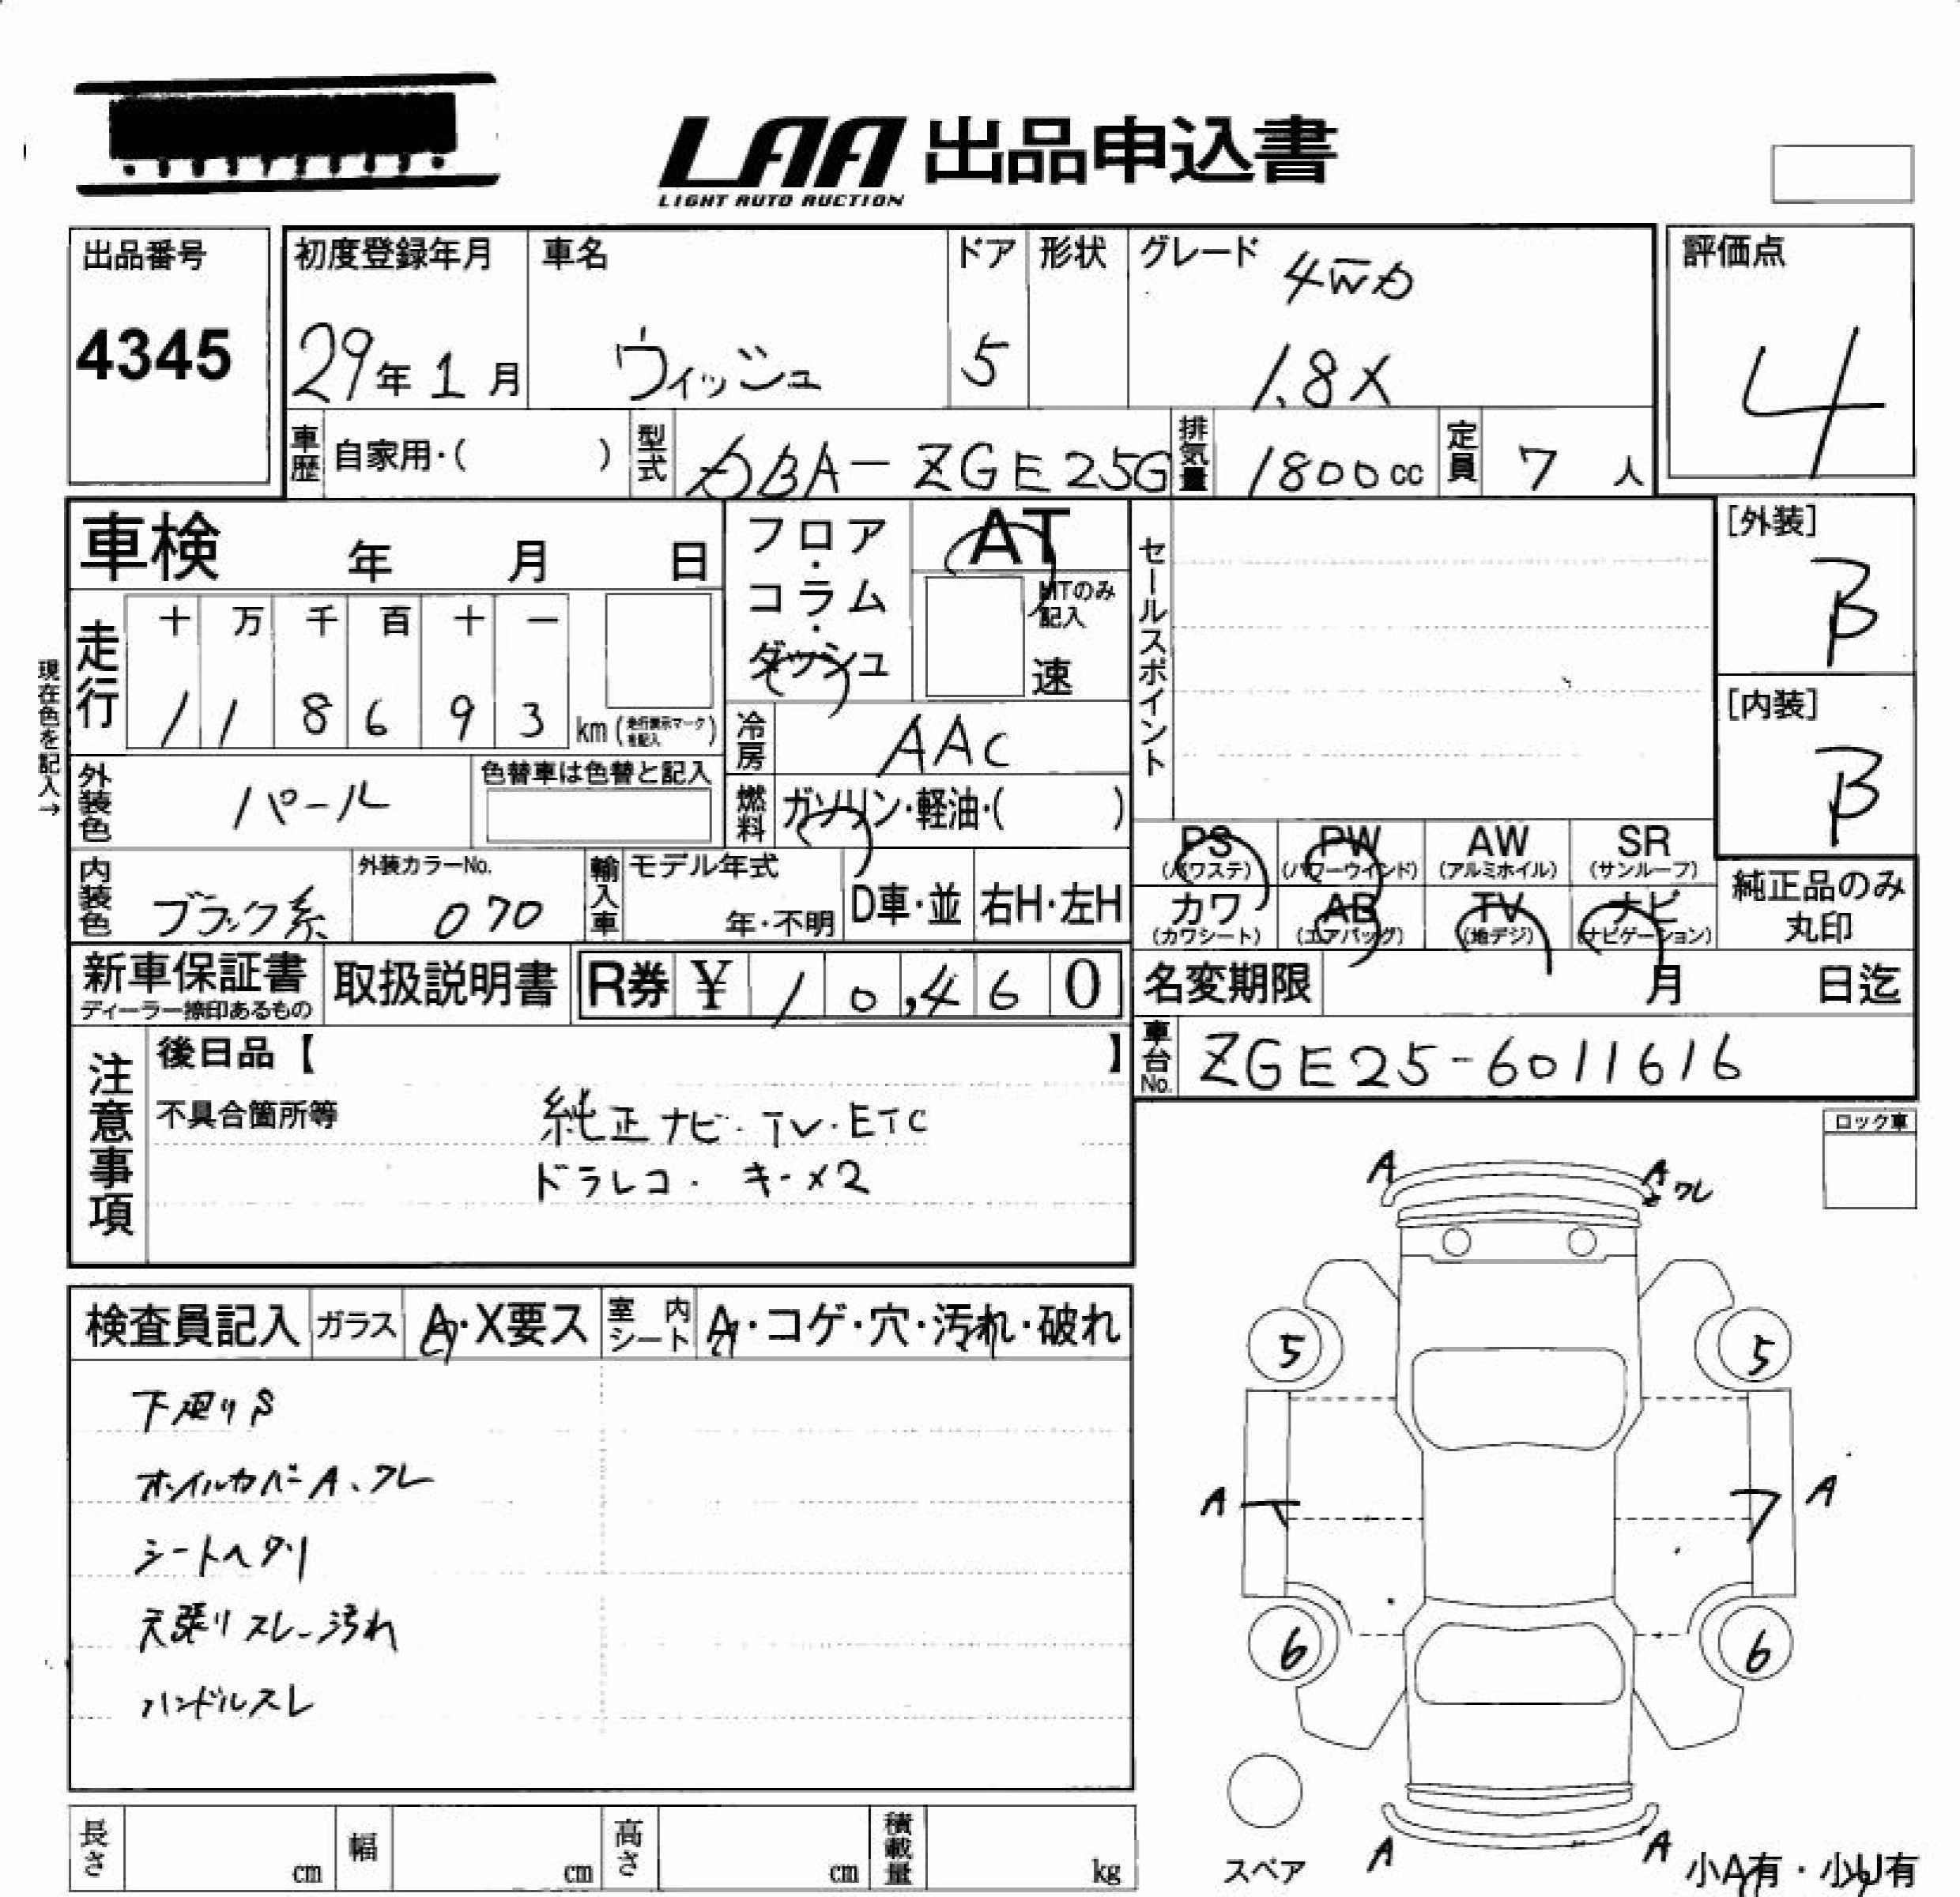 LAA 出品申込書
LIGHT AUTO AUCTION
出品番号
4345
初度登録年月
29年1月
車名
ウィッシュ
ドア
5
形状
グレード
4WD
1.8X
評価点
4
車歴 自家用・( )
型式 DBA-ZGE25G
排気量 1800cc
定員 7人
車検 年 月 日
フロア・コラム・ダッシュ
AT
MTのみ記入
速
セールスポイント
[外装]
B
[内装]
B
現在色を記入→
走行
十 万 千 百 十 一
1 1 8 6 9 3 km (走行表示マークを記入)
冷房 AAC
外装色 パール
色替車は色替と記入
燃料 ガソリン・軽油・( )
PS (パワステ)
PW (パワーウインド)
AW (アルミホイル)
SR (サンルーフ)
カワ (カワシート)
AB (エアバッグ)
TV (地デジ)
ナビ (ナビゲーション)
純正品のみ丸印
内装色 ブラック系
外装カラーNo.
070
輸入車
モデル年式
年・不明
D車・並
右H・左H
新車保証書
ディーラー捺印あるもの
取扱説明書
R券 ¥ 10,460
名変期限 月 日迄
車台No. ZGE25-6011616
注意事項
後日品【 】
不具合箇所等
純正ナビ・TV・ETC
ドラレコ・キー×2
ロック車
検査員記入
ガラス A・X要ス
室内シート A・コゲ・穴・汚れ・破れ
下廻りS
ホイルカバーA、ワレ
シートヘタリ
天張りスレ、汚れ
ハンドルスレ
A
A
ワレ
5
5
A
A
6
6
スペア
A
A
小A有・小U有
長さ cm
幅 cm
高さ cm
積載量 kg